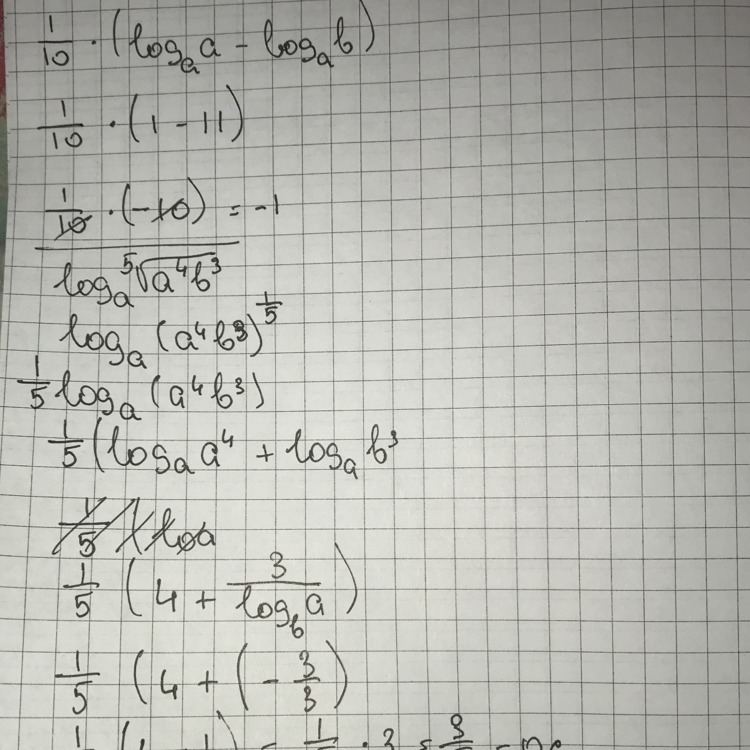 1/10 · (logₐa - logₐb)
1/10 · (1 - 11)
1/10 · (-10) = -1
logₐ ⁵√(a⁴b³)
logₐ (a⁴b³)^(1/5)
1/5 logₐ (a⁴b³)
1/5 (logₐa⁴ + logₐb³
1/5 (4 + 3/(log_b a))
1/5 (4 + (- 3/3)